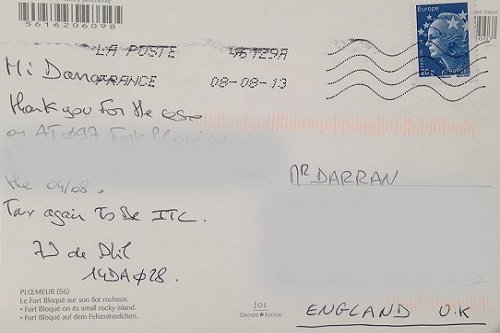 5616206098
LA POSTE 46129A
FRANCE 08-08-13
Europe
20g FRANCE
Hi Darran
thank you for the QSO
on AT
the 04/08.
again to be ITC.
73 de Phil
14DAØ28.
PLŒMEUR (56)
Le Fort Bloqué sur son îlot rocheux.
• Fort Bloqué on its small rocky island.
• Fort Bloqué auf dem Felseninselchen.
JOS
MR DARRAN
ENGLAND U.K